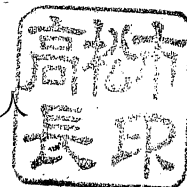 高松市
長印